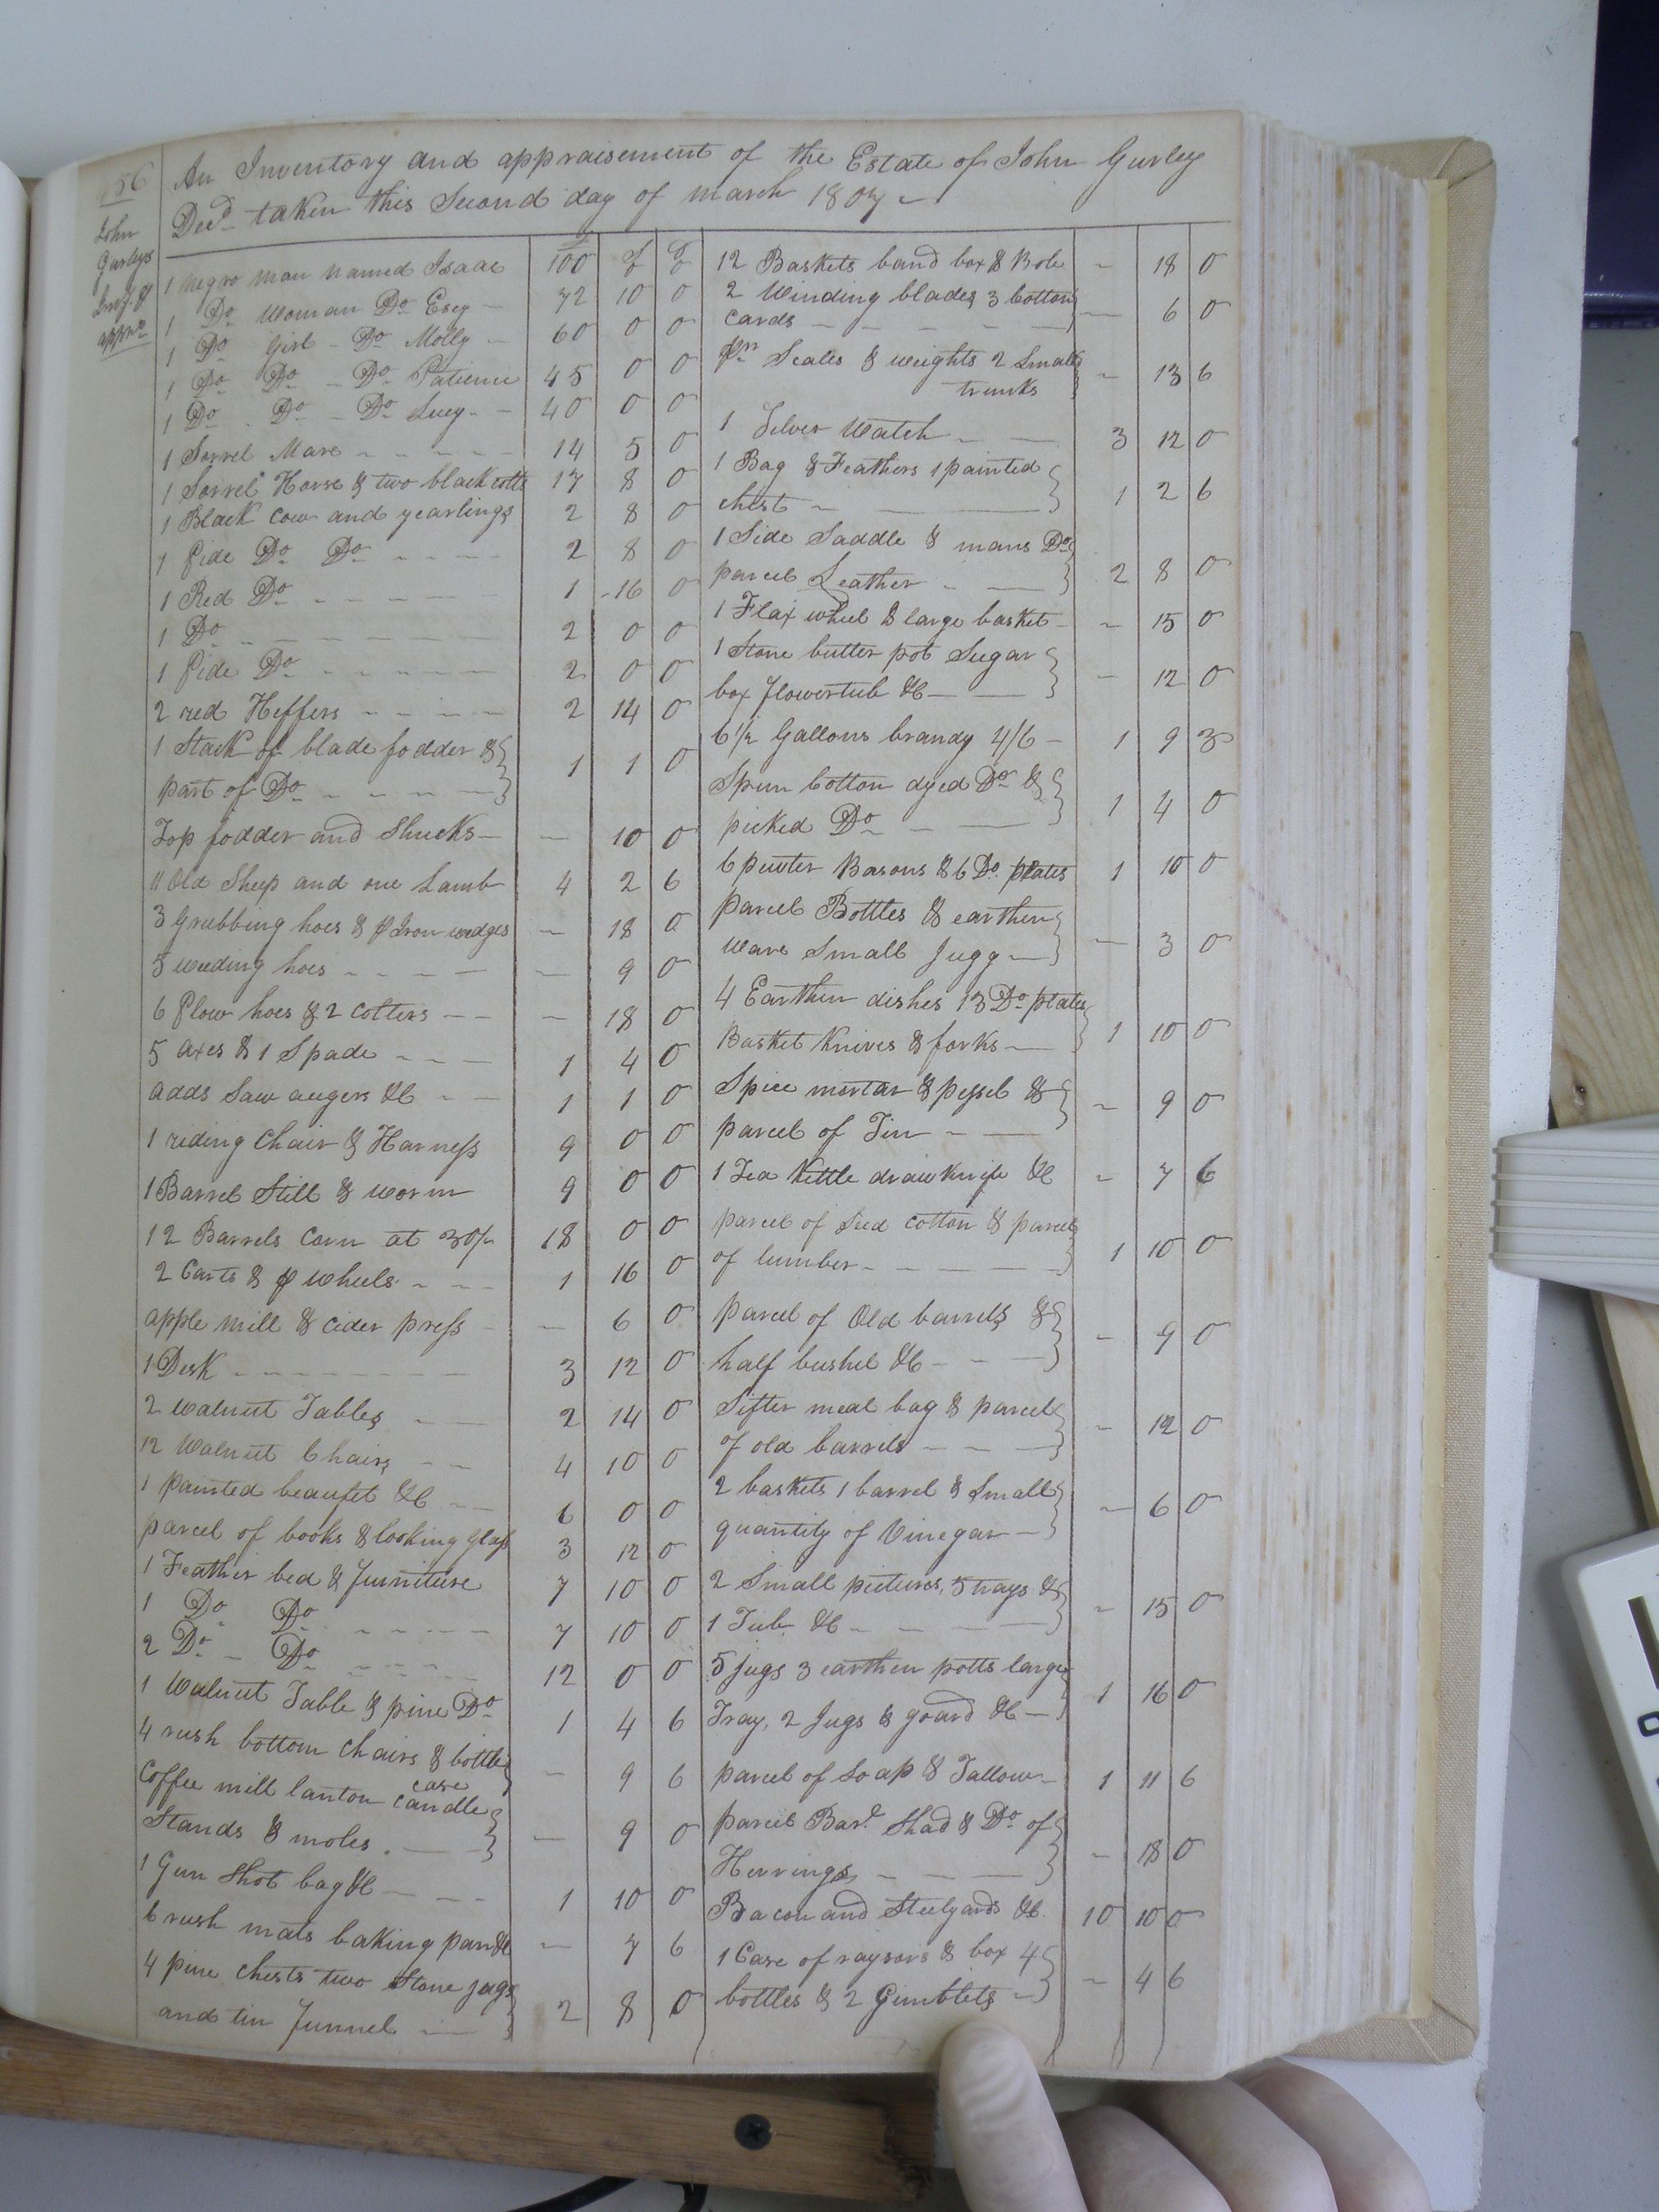 156
An Inventory and appraisement of the Estate of John Gurley
Decd. taken this Second day of march 1807
John
Gurleys
Inv. &
apprt
1 negro man named Isaac 100 0 0
1 Do Woman Do Esey 72 10 0
1 Do Girl Do Molly 60 0 0
1 Do Do Do Patience 45 0 0
1 Do Do Do Lucy 40 0 0
1 Sorrel Mare 14 5 0
1 Sorrel Horse & two black colts 17 8 0
1 Black Cow and yearlings 2 8 0
1 Pide Do Do 2 8 0
1 Red Do 1 16 0
1 Do 2 0 0
1 Pide Do 2 0 0
2 red Heffers 2 14 0
1 Stack of blade fodder &
part of Do 1 1 0
Top fodder and Shucks — 10 0
11 Old Sheep and one Lamb 4 2 6
3 Grubbing hoes & pr Iron wedges — 18 0
5 weeding hoes — 9 0
6 Plow hoes & 2 Colters — 18 0
5 axes & 1 Spade 1 4 0
adds Saw augers &c 1 1 0
1 riding Chair & Harness 9 0 0
1 Barrel Still & worm 9 0 0
12 Barrels Corn at 30/ 18 0 0
2 Carts & pr wheels 1 16 0
apple mill & cider press — 6 0
1 Desk 3 12 0
2 walnut Tables 2 14 0
12 Walnut Chairs 4 10 0
1 painted beaufet &c 6 0 0
parcel of books & looking glass 3 12 0
1 Feather bed & furniture 7 10 0
1 Do Do 7 10 0
2 Do Do 12 0 0
1 Walnut Table & pine Do 1 4 6
4 rush bottom Chairs & bottle
case — 9 6
Coffee mill lanton candle
Stands & moles — 9 0
1 Gun Shot bag &c 1 10 0
6 rush mats baking pan &c — 7 6
4 pine chests two Stone jugs
and tin funnel 2 8 0
12 Baskets band box & Bole — 18 0
2 Winding blades 3 Cotton
cards — 6 0
pr Scales & weights 2 Small
trunks — 13 6
1 Silver Watch 3 12 0
1 Bag & Feathers 1 painted
chest 1 2 6
1 Side Saddle & mans Do
parcel Leather 2 8 0
1 Flax wheel & large basket — 15 0
1 Stone butter pot Sugar
box flowertub &c — 12 0
6 1/2 Gallons brandy 4/6 1 9 3
Spun Cotton dyed Do &
picked Do 1 4 0
6 pewter Basons & 6 Do plates 1 10 0
parcel Bottles & earthen
ware Small Jugg — 3 0
4 Earthen dishes 13 Do plates
Basket Knives & forks 1 10 0
Spice mortar & pessel &
parcel of Tin — 9 0
1 Tea Kettle draw knife &c — 7 6
parcel of Seed cotton & parcel
of lumber 1 10 0
parcel of Old barrels &
half bushel &c — 9 0
Sifter meal bag & parcel
of old barrels — 12 0
2 baskets 1 barrel & Small
quantity of Vinegar — 6 0
2 Small pictures, 5 trays &
1 Tub &c — 15 0
5 jugs 3 earthen potts large
Tray, 2 Jugs & goard &c 1 16 0
parcel of Soap & Tallow 1 11 6
parcel Barl. Shad & Do of
Herrings — 18 0
Bacon and Steelyards &c 10 10 0
1 Case of raysors & box 4
bottles & 2 Gimblets — 4 6